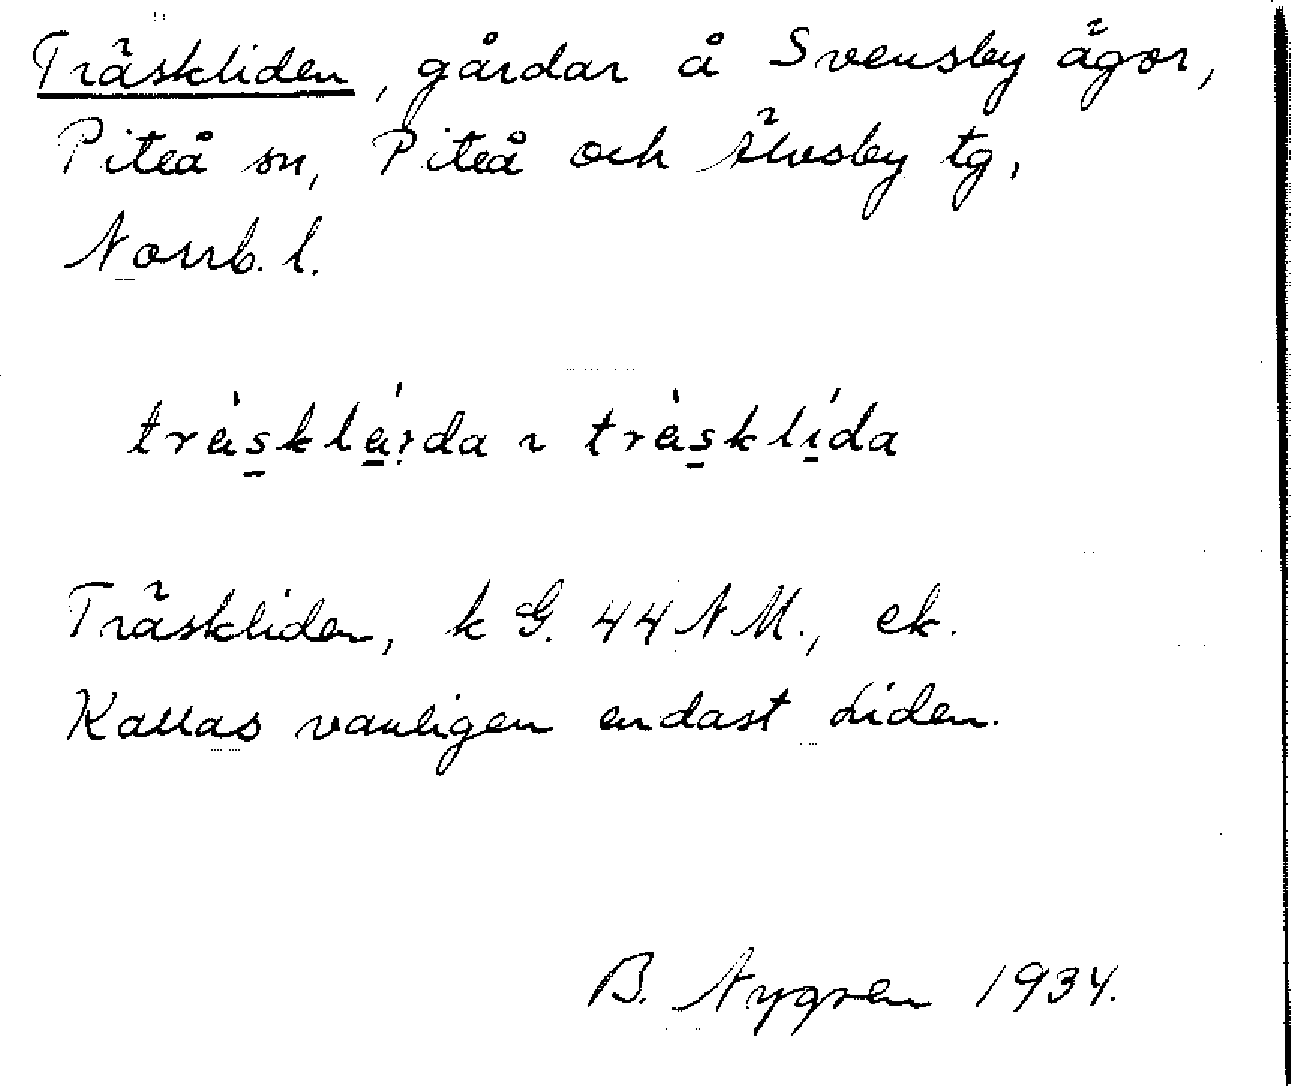 Träskliden, gårdar å Svensby ägor,
Piteå sn, Piteå och Älvsby tg,
Norrb. l.
träsklà̱i̯da ~ träsklída
Träskliden, k G. 44 N M., ek.
Kallas vanligen endast Liden.
B. Nygren 1934.